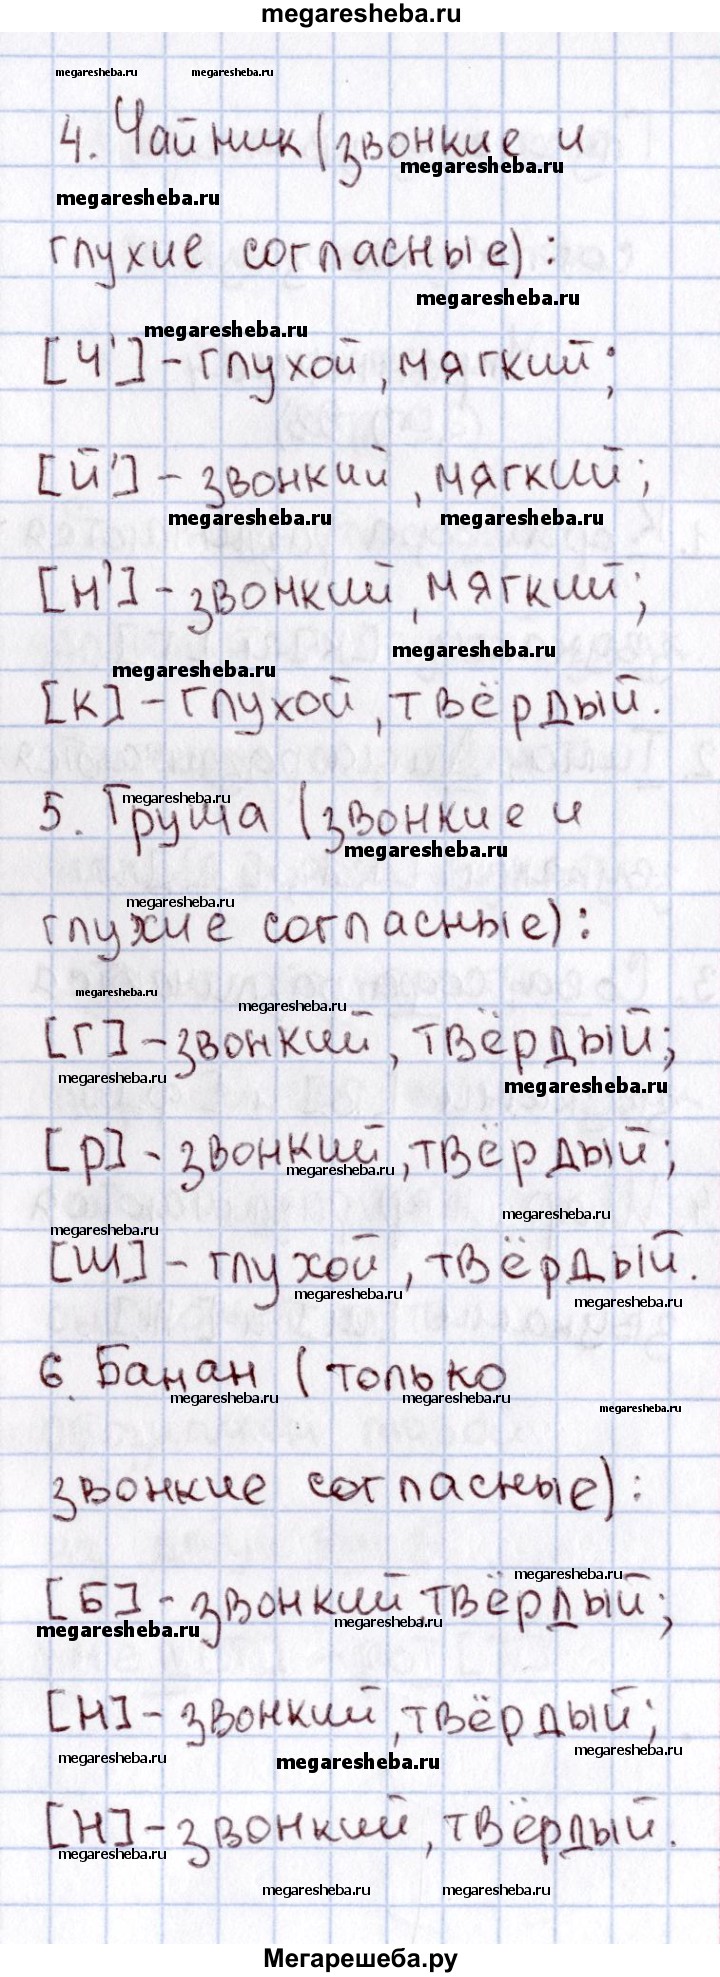 megaresheba.ru
megaresheba.ru megaresheba.ru
4. Чайник (звонкие и
megaresheba.ru
megaresheba.ru
глухие согласные):
megaresheba.ru
megaresheba.ru
[Ч'] - глухой, мягкий;
[й'] - звонкий, мягкий;
megaresheba.ru megaresheba.ru
[н'] - звонкий, мягкий;
megaresheba.ru
megaresheba.ru
[к] - глухой, твёрдый.
megaresheba.ru
5. Груша (звонкие и
megaresheba.ru
megaresheba.ru
глухие согласные):
megaresheba.ru
megaresheba.ru
[г] - звонкий, твёрдый;
megaresheba.ru
megaresheba.ru
[р] - звонкий, твёрдый;
megaresheba.ru
megaresheba.ru
megaresheba.ru
[ш] - глухой, твёрдый.
megaresheba.ru
megaresheba.ru
6. Банан (только
megaresheba.ru megaresheba.ru
megaresheba.ru
звонкие согласные):
megaresheba.ru
[Б] - звонкий, твёрдый;
megaresheba.ru
megaresheba.ru
[н] - звонкий, твёрдый;
megaresheba.ru
megaresheba.ru
megaresheba.ru
[н] - звонкий, твёрдый.
megaresheba.ru
megaresheba.ru megaresheba.ru
Мегарешеба.ру